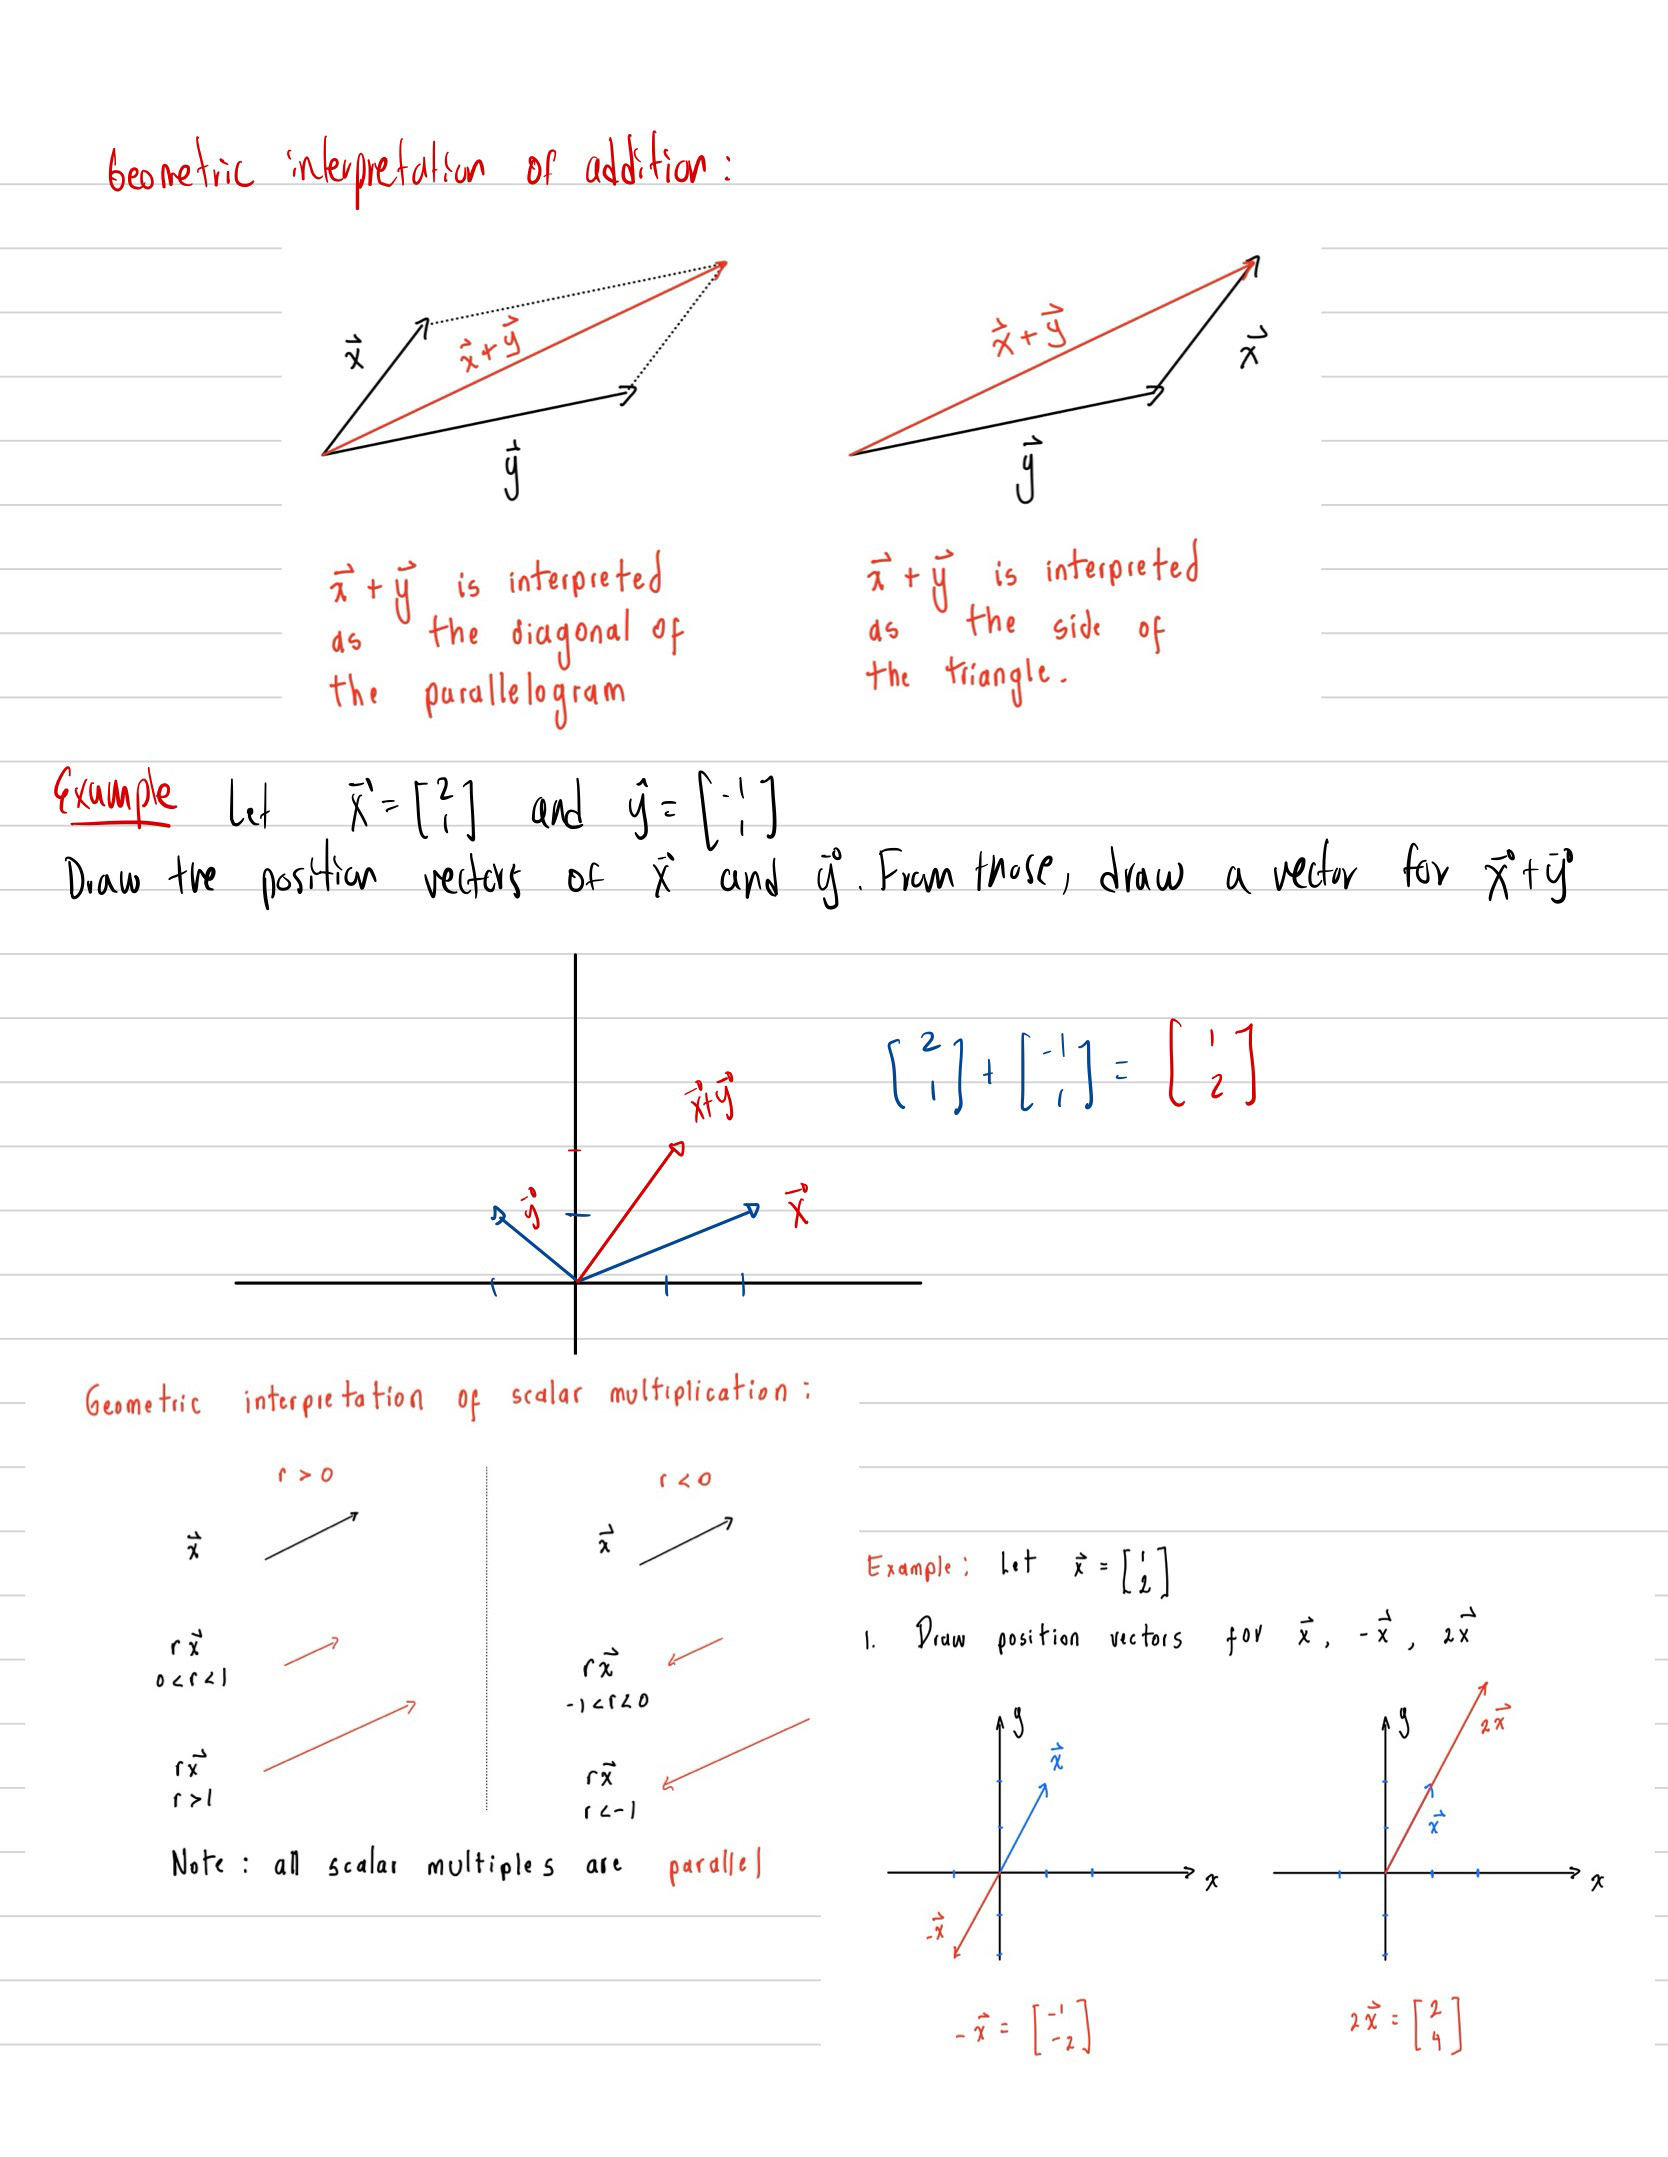 Geometric interpretation of addition:
x⃗
x⃗ + y⃗
y⃗
x⃗ + y⃗
x⃗
y⃗
x⃗ + y⃗ is interpreted
as the diagonal of
the parallelogram
x⃗ + y⃗ is interpreted
as the side of
the triangle.
Example Let x⃗ = [2 1] and ŷ = [-1 1]
Draw the position vectors of x⃗ and y⃗. From those, draw a vector for x⃗+y⃗
[2 1] + [-1 1] = [1 2]
x⃗+y⃗
y⃗
x⃗
Geometric interpretation of scalar multiplication:
r > 0
r < 0
x⃗
x⃗
rx⃗
0<r<1
rx⃗
-1<r<0
rx⃗
r>1
rx⃗
r<-1
Note: all scalar multiples are parallel
Example: Let x⃗ = [1 2]
1. Draw position vectors for x⃗, -x⃗, 2x⃗
y
x⃗
x
-x⃗
-x⃗ = [-1 -2]
y
2x⃗
x⃗
x
2x⃗ = [2 4]